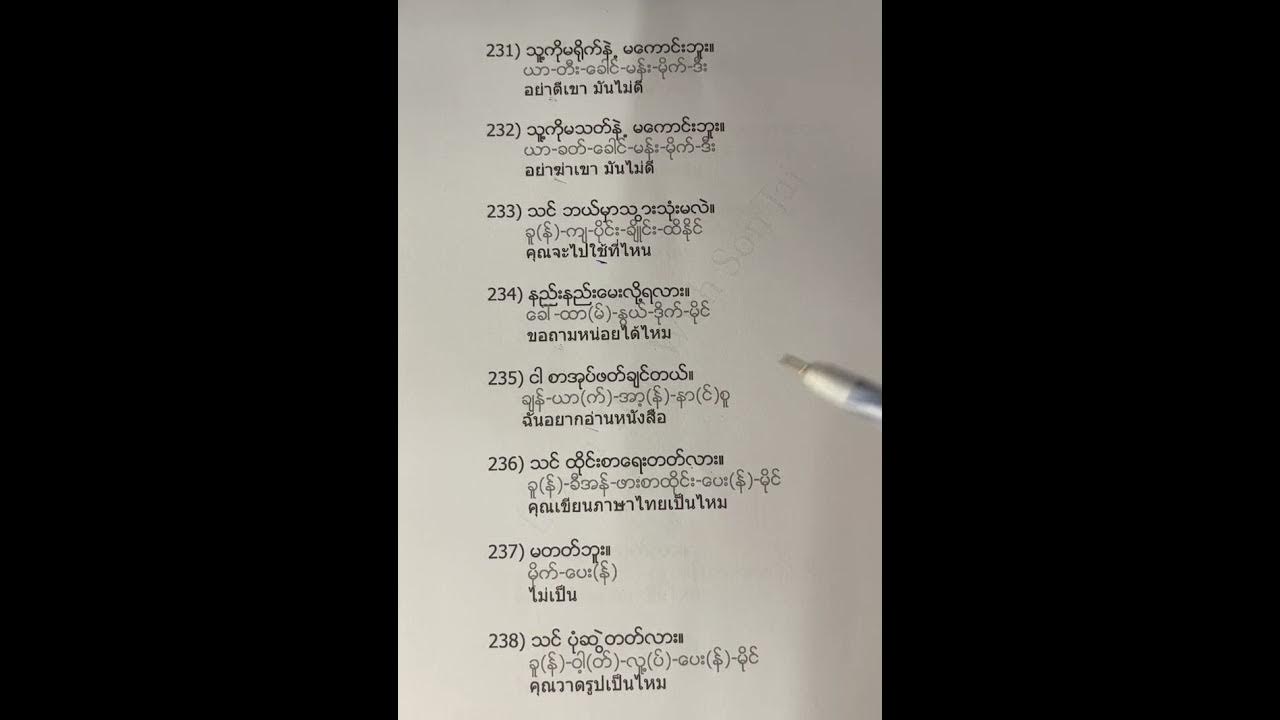 231) သူ့ကိုမရိုက်နဲ့ မကောင်းဘူး။
ယာ-တီး-ခေါင်-မန်း-မိုက်-ဒီး
อย่าตีเขา มันไม่ดี
232) သူ့ကိုမသတ်နဲ့ မကောင်းဘူး။
ယာ-ခတ်-ခေါင်-မန်း-မိုက်-ဒီး
อย่าฆ่าเขา มันไม่ดี
233) သင် ဘယ်မှာသွားသုံးမလဲ။
ခူ(န်)-ကျ-ပိုင်း-ချိုင်း-ထိနိုင်
คุณจะไปใช้ที่ไหน
234) နည်းနည်းမေးလို့ရလား။
ခေါ်-ထာ(မ်)-နွယ်-ဒိုက်-မိုင်
ขอถามหน่อยได้ไหม
235) ငါ စာအုပ်ဖတ်ချင်တယ်။
ချန်-ယာ(က်)-အာ့(န်)-နာ(င်)စူ
ฉันอยากอ่านหนังสือ
236) သင် ထိုင်းစာရေးတတ်လား။
ခူ(န်)-ခီအန်-ဖားစာထိုင်း-ပေး(န်)-မိုင်
คุณเขียนภาษาไทยเป็นไหม
237) မတတ်ဘူး။
မိုက်-ပေး(န်)
ไม่เป็น
238) သင် ပုံဆွဲတတ်လား။
ခူ(န်)-ဝါ့(တ်)-လူ့(ပ်)-ပေး(န်)-မိုင်
คุณวาดรูปเป็นไหม